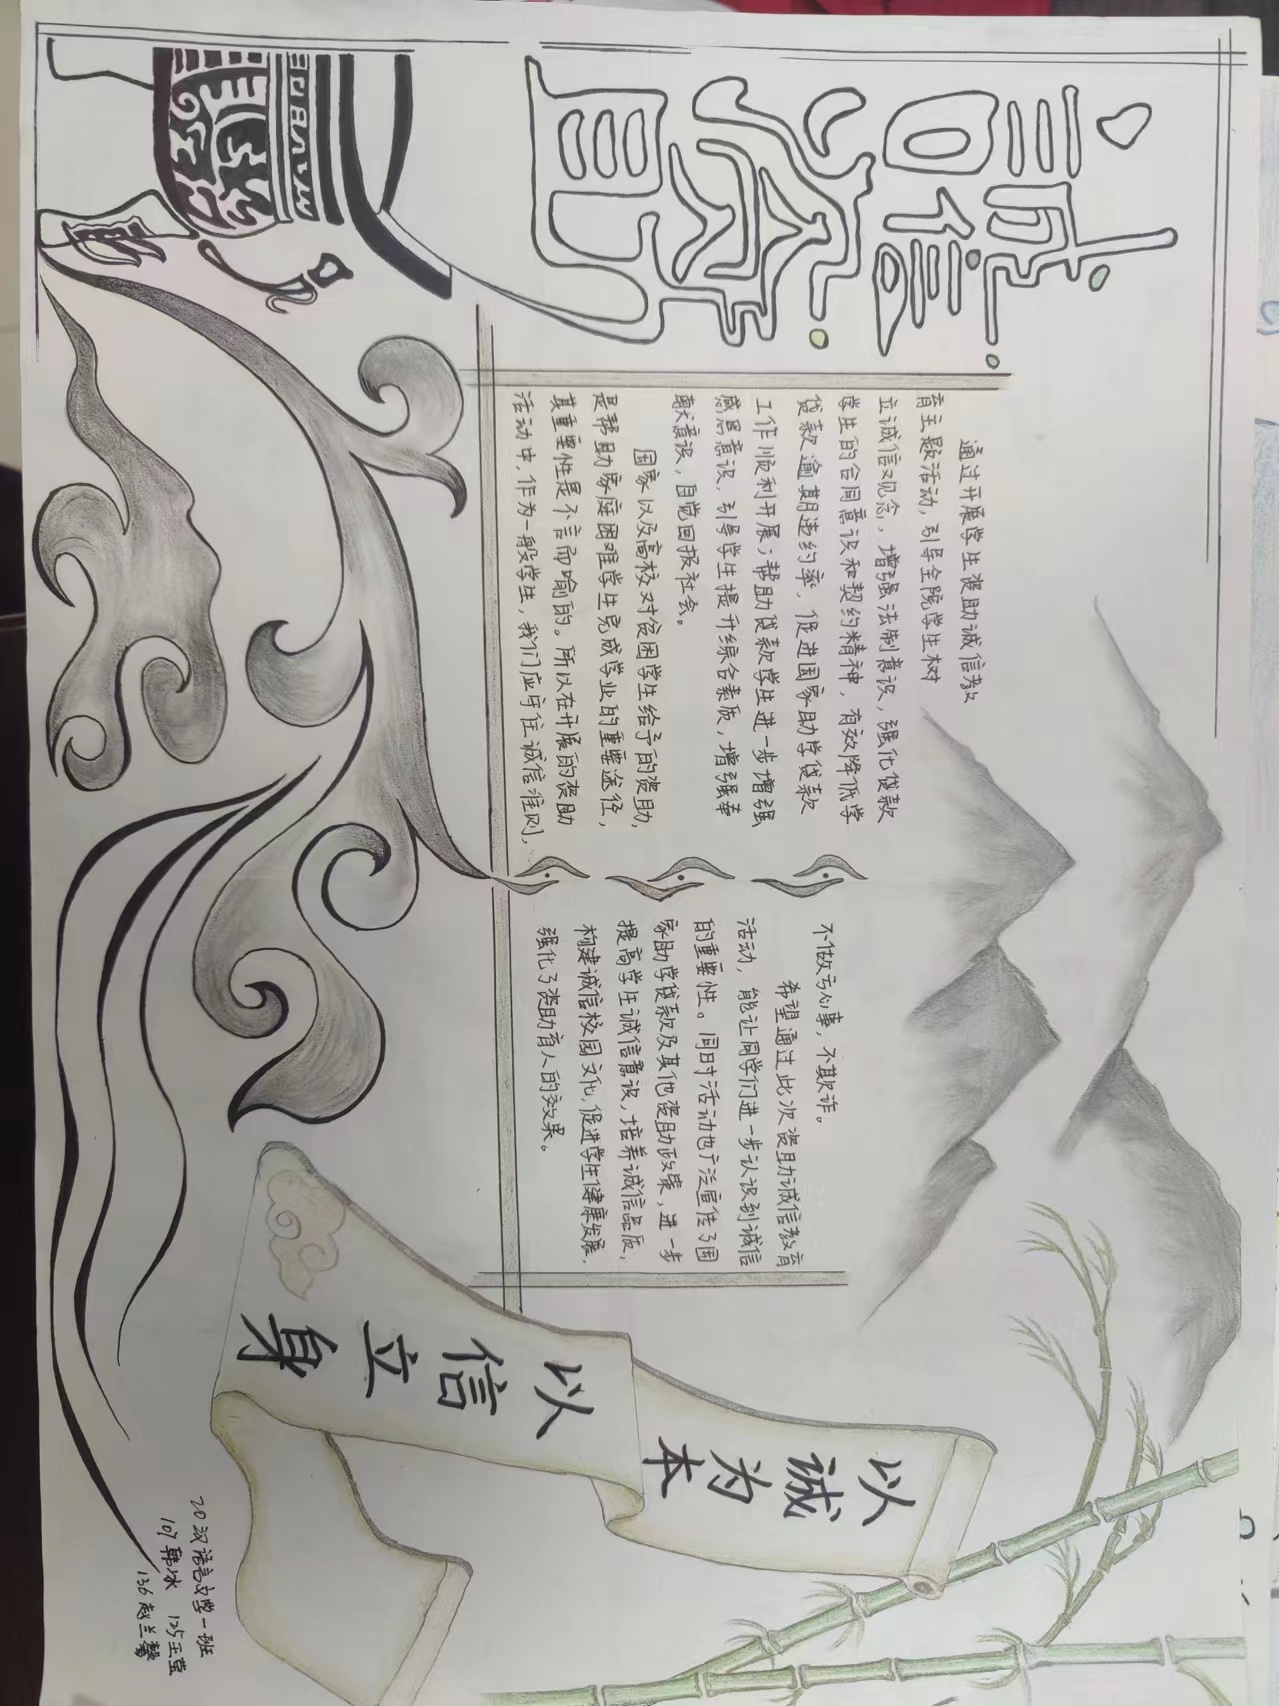 诚信
资助
通过开展学生资助诚信教
育主题活动，引导全院学生树
立诚信观念，增强法制意识，强化贷款
学生的合同意识和契约精神，有效降低学
贷款逾期违约率，促进国家助学贷款
工作顺利开展；帮助贷款学生进一步增强
感恩意识，引导学生提升综合素质，增强奉
献意识，自觉回报社会。
国家以及高校对贫困学生给予的资助，
是帮助家庭困难学生完成学业的重要途径，
其重要性是不言而喻的。所以在开展的资助
活动中，作为一般学生，我们应守住诚信准则，
不做亏心事，不欺诈。
希望通过此次资助诚信教育
活动，能让同学们进一步认识到诚信
的重要性。同时活动也广泛宣传了国
家助学贷款及其他资助政策，进一步
提高学生诚信意识，培养诚信品质，
构建诚信校园文化，促进学生健康发展，
强化了资助育人的效果。
以诚为本
以信立身
20汉语言文学一班
107韩冰 125王莹
136赵兰馨